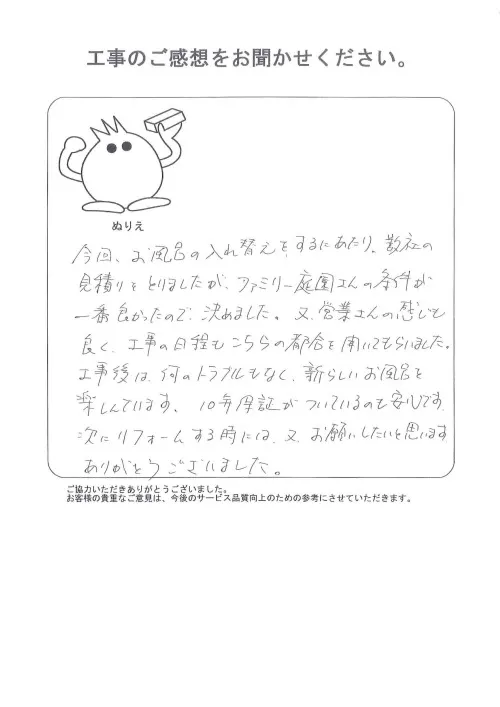 工事のご感想をお聞かせください。
ぬりえ
今回、お風呂の入れ替えをするにあたり、数社の
見積りをとりましたが、ファミリー庭園さんの条件が
一番良かったので、決めました。又、営業さんの感じも
良く、工事の日程もこちらの都合を聞いてもらいました。
工事後は、何のトラブルもなく、新らしいお風呂を
楽しんでいます。10年保証がついているのも安心です。
次にリフォームする時には、又、お願いしたいと思います
ありがとうございました。
ご協力いただきありがとうございました。
お客様の貴重なご意見は、今後のサービス品質向上のための参考にさせていただきます。